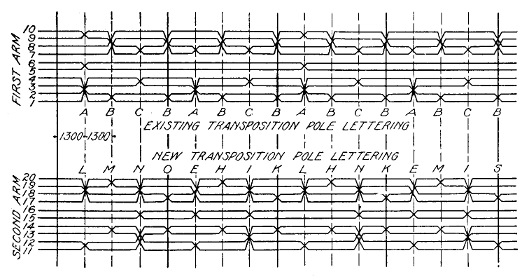 FIRST ARM
10
9
8
7
6
5
4
3
2
1
A B C B A B C B A B C B A B C B
EXISTING TRANSPOSITION POLE LETTERING
1300 1300
NEW TRANSPOSITION POLE LETTERING
L M N O E H I K L H N K E M I S
SECOND ARM
20
19
18
17
16
15
14
13
12
11